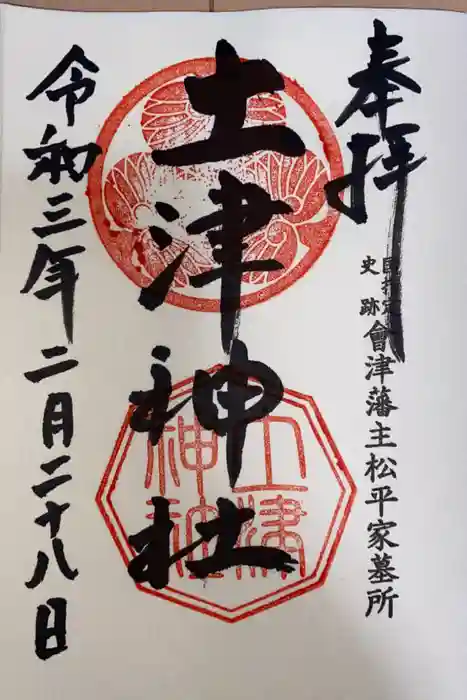 奉拝
国指定
史跡
會津藩主松平家墓所
土津神社
土津
神社
令和三年二月二十八日